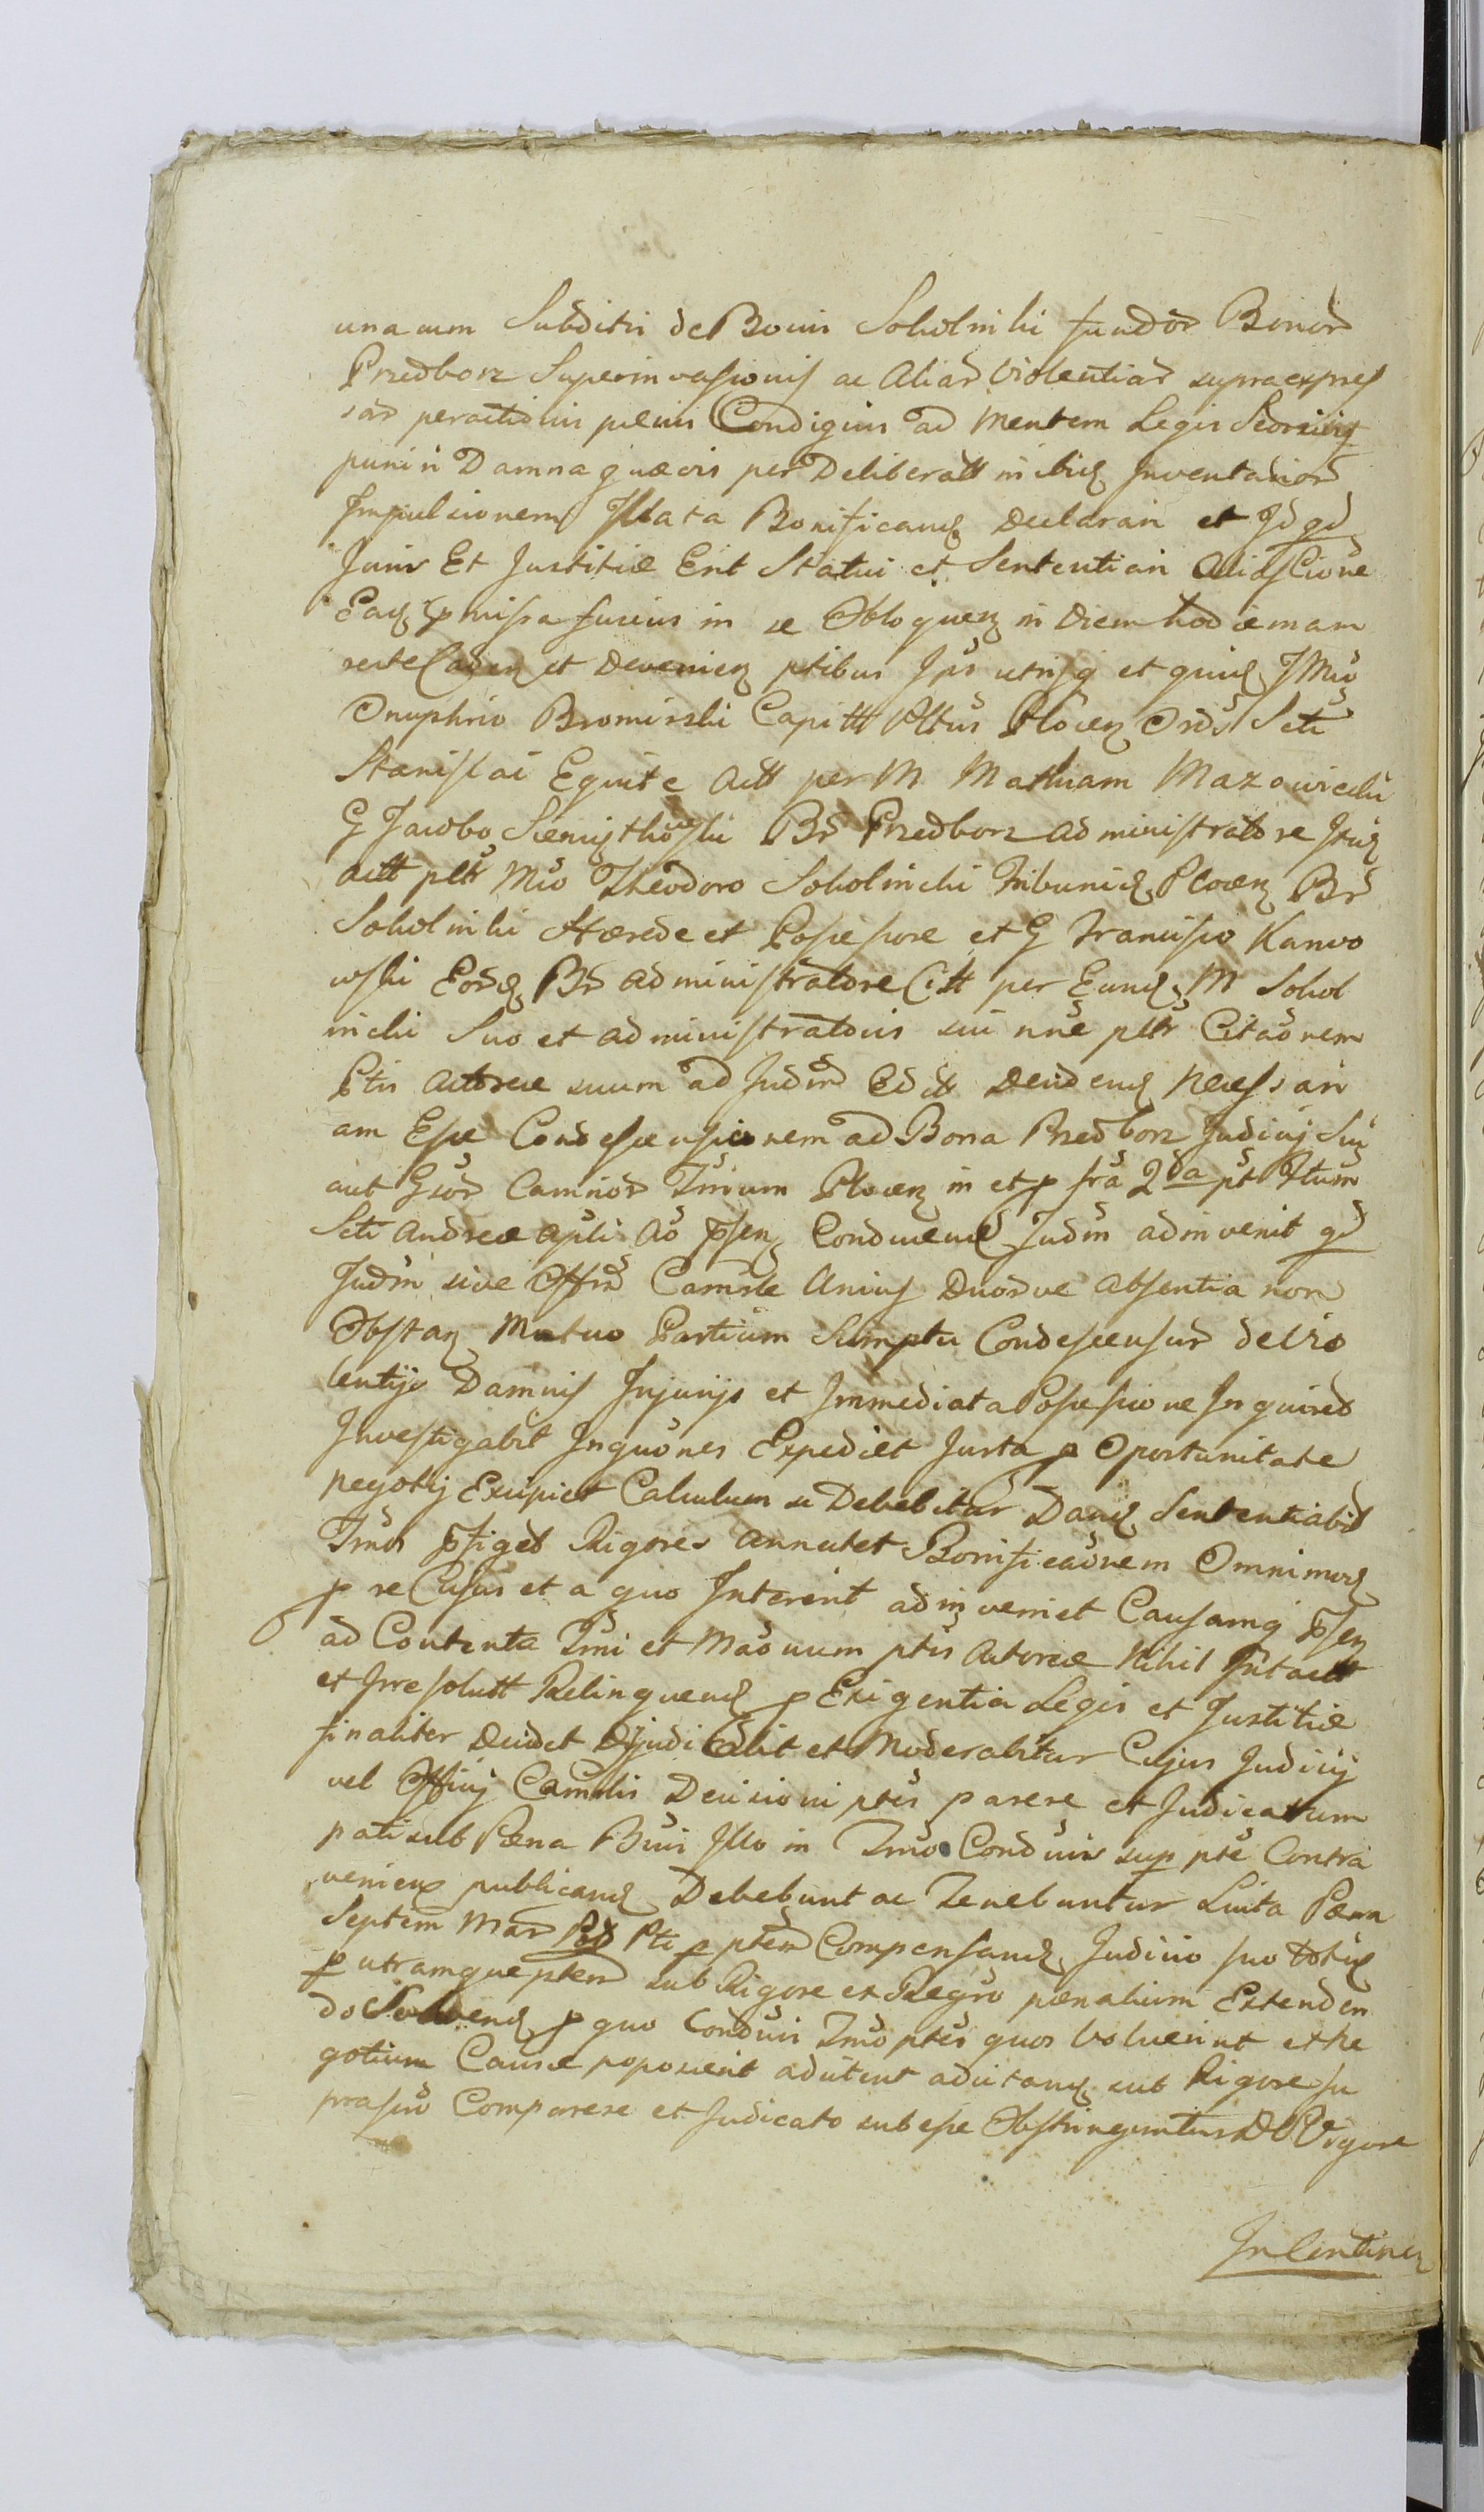 una cum Subditis de Bonis Sokolniki fundor Bonor
Przedborz Superinvasionis ac Aliar Violentiar supraexpres
sar peractionis pænis Condignis ad mentem Legis Seorsive
puniri Damna quævis per Deliberatt Inventarior
Impulsionem Illata Bonificand Declarari et Id qd
Juris Et Justitiæ Erit Statui et Sententiari Alias Cione
Eaq pmissa fusius in se Obloquen in Diem hodiernam
recte Caden et Devenien ptibus Ips utrisq et quid IMco
Onuphrio Bromirski Capitt Pltus Plocen Ords Scti
Stanislai Equite Actt per M Mathiam Mazowiecki
G Jacobo Br Przedborz administratore Itid
actt pltr Mco Theodoro Sokolnicki Tribunid Plocen Br
Sokolniki Hærede et Possessore et G Francisco Karwo
wski Eord Br administratore Citt per Eund M Sokol
nicki Suo et administratoris sui nne pltr Citaonem
Ptis actoreæ suum ad Judm Edit Decidend Necessari
am Esse Condescensionem ad Bona Przedborz Judicij Sui
aut Gsor Camrior Trium Plocen in et p fra 2da pt Ftum
Scti Andreæ apli Ao Psen Conducend Judm adinvenit qd
Judm sive Offm Camrle Unius Duorve absentia non
Obstan Mutuo Partium Sumptu Condescensur de Vio
lentijs Damnis Injurijs et Immediata Possessione Inquiret
Investigabit Inquones Expediet Jurta p Oportunitate
negotij Excipiet Calculum si Debebitur Dand Sententiabit
Tmos Pfiget Rigores annectet Bonificaonem Omnimod
p re Cujus et a quo Intererit adinveniet Causamq Psen
ad Contenta Tmi et Maonum ptis Actoreæ Nihil Intactt
et Irresolutt Relinquend p Exigentia Legis et Justitiæ
finaliter Decidet Dijudicabit et Moderabitur Cujus Judicij
vel Officij Camrlis Decisioni ptes parere et Judicatum
pati sub Pæna Bnis Illo in Tmo Conducis sup pte Contra
venien publicand Debebunt ac Tenebuntur Luita Pæna
Septem Mar Pti p ptem Compensand Judicio suo totid
p utramque ptem sub Rigore et Regro pænalium Extenden
do Solvend p quo Conducis Tmo ptes quos Voluerint et ne
gotium Causæ poposcerit adcitent adcitand sub Rigore su
prascio Comparere et Judicato subesse Obstringuntur D Vigore
In Continen